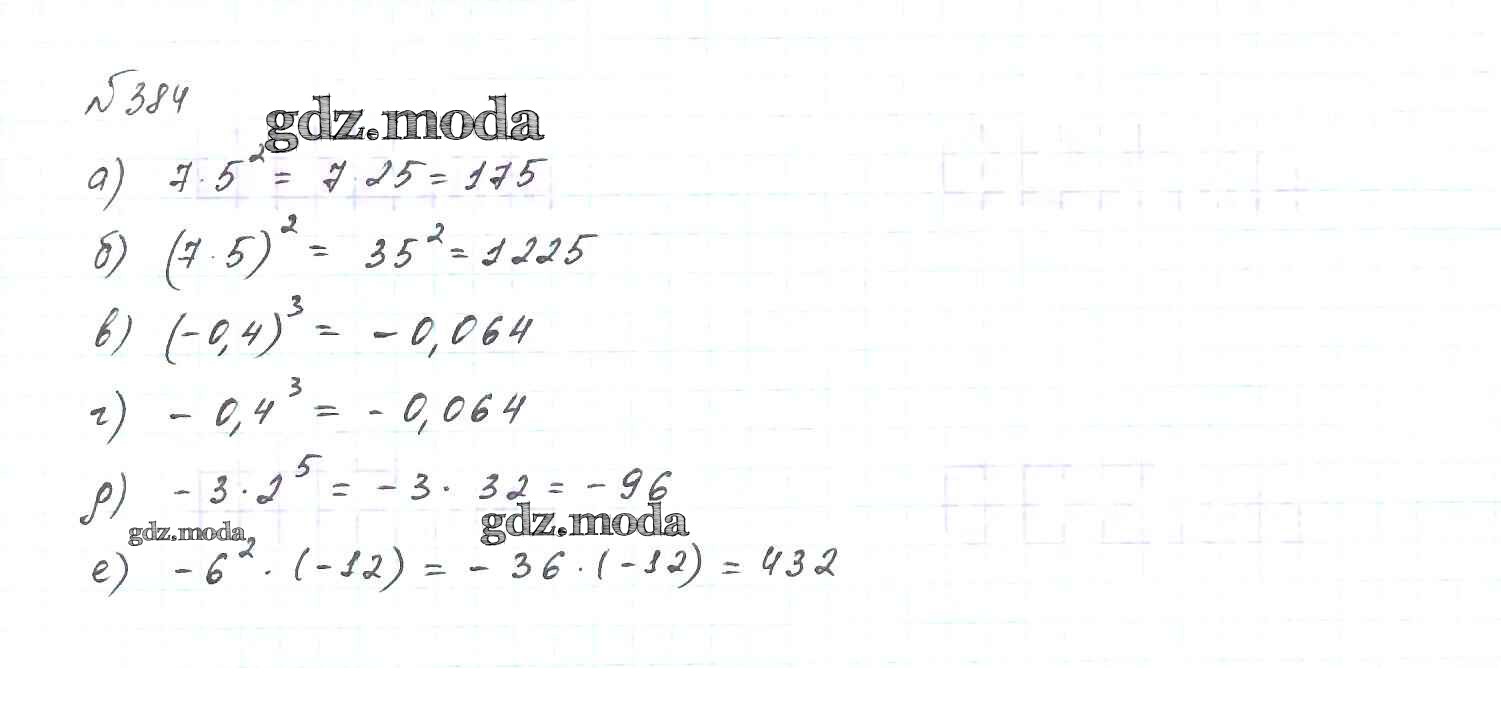 №384
gdz.moda
а) 7·5² = 7·25 = 175
б) (7·5)² = 35² = 1225
в) (-0,4)³ = -0,064
г) -0,4³ = -0,064
д) -3·2⁵ = -3·32 = -96
gdz.moda gdz.moda
е) -6²·(-12) = -36·(-12) = 432